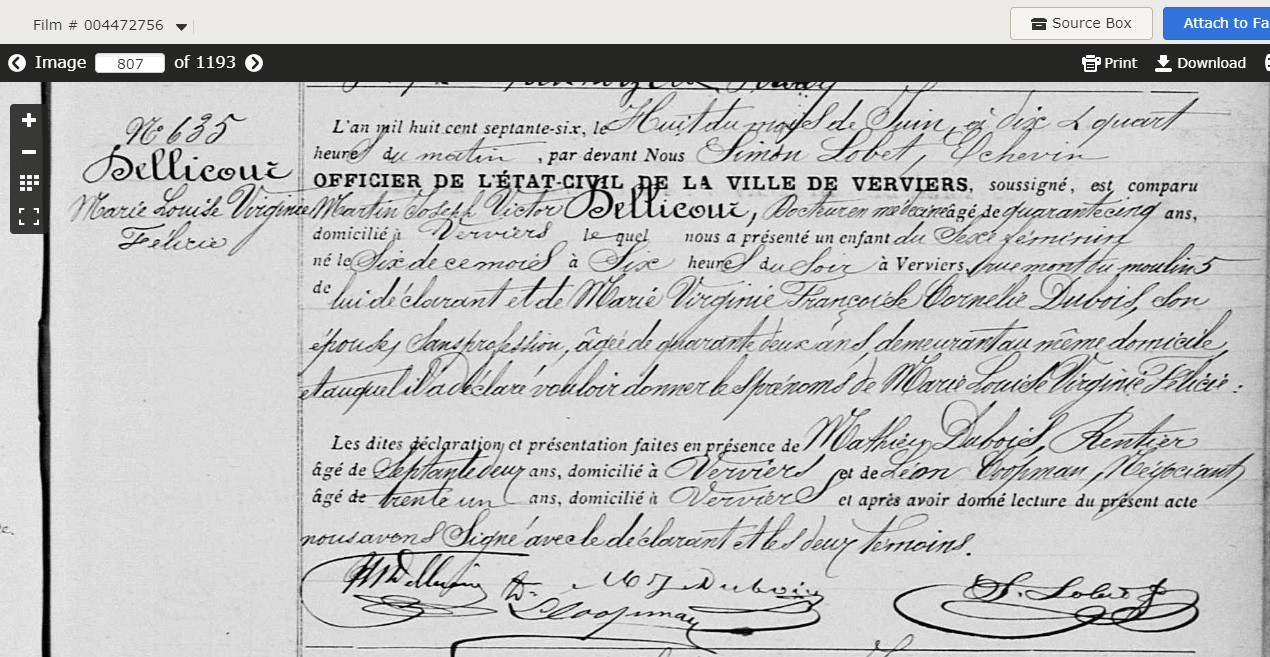 Film # 004472756
Source Box
Attach to Fa
Image 807 of 1193
Print
Download
N° 635
Dellicour
Marie Louise Virginie
Félicie
L'an mil huit cent septante-six, le Huit du mois de Juin, à dix & quart
heures du matin, par devant Nous Simon Lobet, Echevin
OFFICIER DE L'ÉTAT-CIVIL DE LA VILLE DE VERVIERS, soussigné, est comparu
Martin Joseph Victor Dellicour, Docteur en médecine âgé de quarante cinq ans,
domicilié à Verviers le quel nous a présenté un enfant du Sexe féminin
né le Six de ce mois à Six heures du Soir à Verviers, rue mont du moulin 5
de lui déclarant et de Marie Virginie Françoise Cornelie Dubois, Son
épouse, Sans profession, âgée de quarante deux ans, demeurant au même domicile,
et auquel il a déclaré vouloir donner les prénoms de Marie Louise Virginie Félicie :
Les dites déclaration et présentation faites en présence de Mathieu Dubois, Rentier
âgé de Septante deux ans, domicilié à Verviers et de Léon Coopman, Négociant
âgé de trente un ans, domicilié à Verviers et après avoir donné lecture du présent acte
nous avons Signé avec le déclarant et les deux témoins.
Dr
M J Dubois
S. Lobet
L Coopman